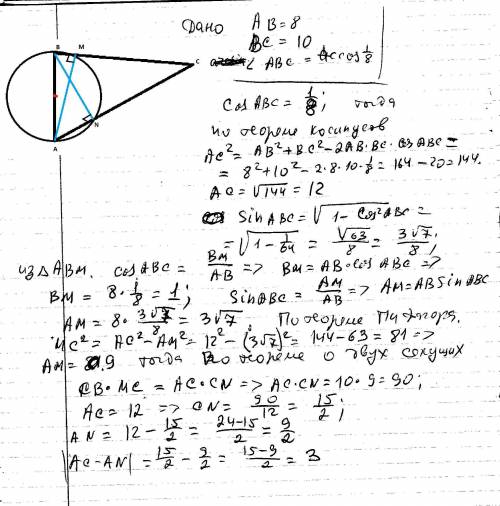 Дано AB = 8
BC = 10
∠ ABC = Arccos 1/8
B M
C
N
A
cos ABC = 1/8; тогда
по теореме косинусов
AC² = AB² + BC² - 2AB·BC·cos ABC =
= 8² + 10² - 2·8·10·1/8 = 164 - 20 = 144.
AC = √144 = 12
Sin ABC = √(1 - Cos² ABC) =
= √(1 - 1/64) = √63/8 = 3√7/8;
из △ ABM. cos ABC = BM/AB => BM = AB·cos ABC =>
BM = 8·1/8 = 1; Sin ABC = AM/AB => AM = AB Sin ABC
AM = 8·3√7/8 = 3√7 По теореме Пифагора.
MC² = AC² - AM² = 12² - (3√7)² = 144 - 63 = 81 =>
AM = 9 тогда по теореме о двух секущих
CB·MC = AC·CN => AC·CN = 10·9 = 90;
AC = 12 => CN = 90/12 = 15/2;
AN = 12 - 15/2 = (24-15)/2 = 9/2
|AC-AN| = 15/2 - 9/2 = (15-9)/2 = 3